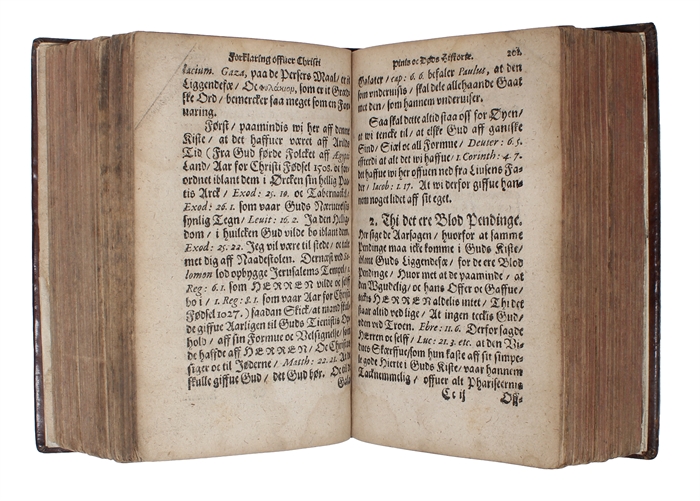 Forklaring offuer Christi
lacium. Gaza, paa de Persers Maal/ er it
Liggendefæ/ Oc som er it Græd
ske Ord/ bemercker saa meget som en For
uaring.
Først/ paamindis wi her aff denne
Kiste/ at det haffuer været aff Arilds
Tid (Fra Gud førde Folcket aff Ægypti
Land/ Aar for Christi Fødsel 1508. oc for
ordnet iblant dem i Ørcken sin hellig Pa
ctis Arck/ Exod: 25. 10. oc Tabernackel
Exod: 26. 1. som vaar Guds Næruerelsis
synlig Tegn/ Leuit: 16. 2. Ja den Hellig-
dom/ i huilcken Gud vilde bo iblant dem.
Exod: 25. 22. Jeg vil være til stede/ oc tale
met dig aff Naadestolen. Dernæst ved Sa
lomon lod opbygge Jerusalems Tempel/ 1.
Reg: 6. 1. som HERREN vilde oc selff
bo i/ 1. Reg: 8. 1. som vaar Aar for Christi
Fødsel 1027.) saadan Skick/ at mand skulde
de giffue Aarligen til Guds Tienistis Op-
hold/ aff sin Formue oc Velsignelse/ som
de haffde aff HERREN/ Oc Christus
siger oc til Jøderne/ Matth: 22. 21. At de
skulle giffue Gud/ det Gud bør. Oc til de
Gala-
Pinis oc Døds Historie. 202.
Galater/ cap: 6. 6. befaler Paulus, at den
som vnderuisis/ skal dele allehaande Gaat
met den/ som hannem vnderuiser.
Saa skal dette altid staa oss for Øyen/
at wi tencke til/ at elske Gud aff gandske
Sind/ Siæl oc all Formue/ Deuter: 6. 5.
effterdi at alt det wi haffue/ 1. Corinth: 4. 7.
det haffue wi her offuen ned fra Liusens Fa-
der/ Jacob: 1. 17. At wi derfor giffue han-
nem noget lidet aff sit eget.
2. Thi det ere Blod Pendinge.
Her sige de Aarsagen/ huorfor at samme
Pendinge maa icke komme i Guds Kiste/
iblant Guds Liggendefæ/ for de ere Blod
Pendinge/ Huor met at de paaminde/ at
den Wgudelig/ oc hans Offer oc Gaffue/
teckis HERREN aldelis intet/ Thi det
staar altid ved lige/ At ingen teckis Gud/
vden ved Troen. Ebre: 11. 6. Derfor sagde
HErren oc selff/ Luc: 21. 3. etc. at den Vi-
duis Skærffue/ som hun kaste aff sit simpe-
le gode Hierte i Guds Kiste/ vaar hannem
Tacknemmelig/ offuer alt Phariseernis
Cc ij Off-